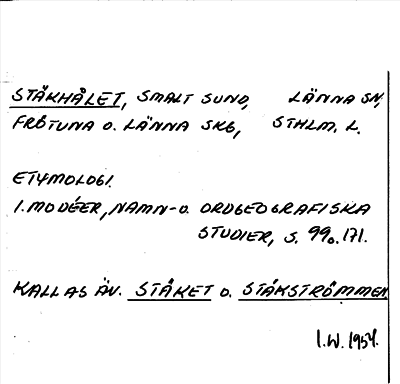 STÅKHÅLET, SMALT SUND, LÄNNA SN,
FRÖTUNA O. LÄNNA SKG, STHLM. L.
ETYMOLOGI.
I. MODÉER, NAMN- O. ORDGEOGRAFISKA
STUDIER, S. 99 o. 171.
KALLAS ÄV. STÅKET O. STÅKSTRÖMMEN.
I.W. 1954.